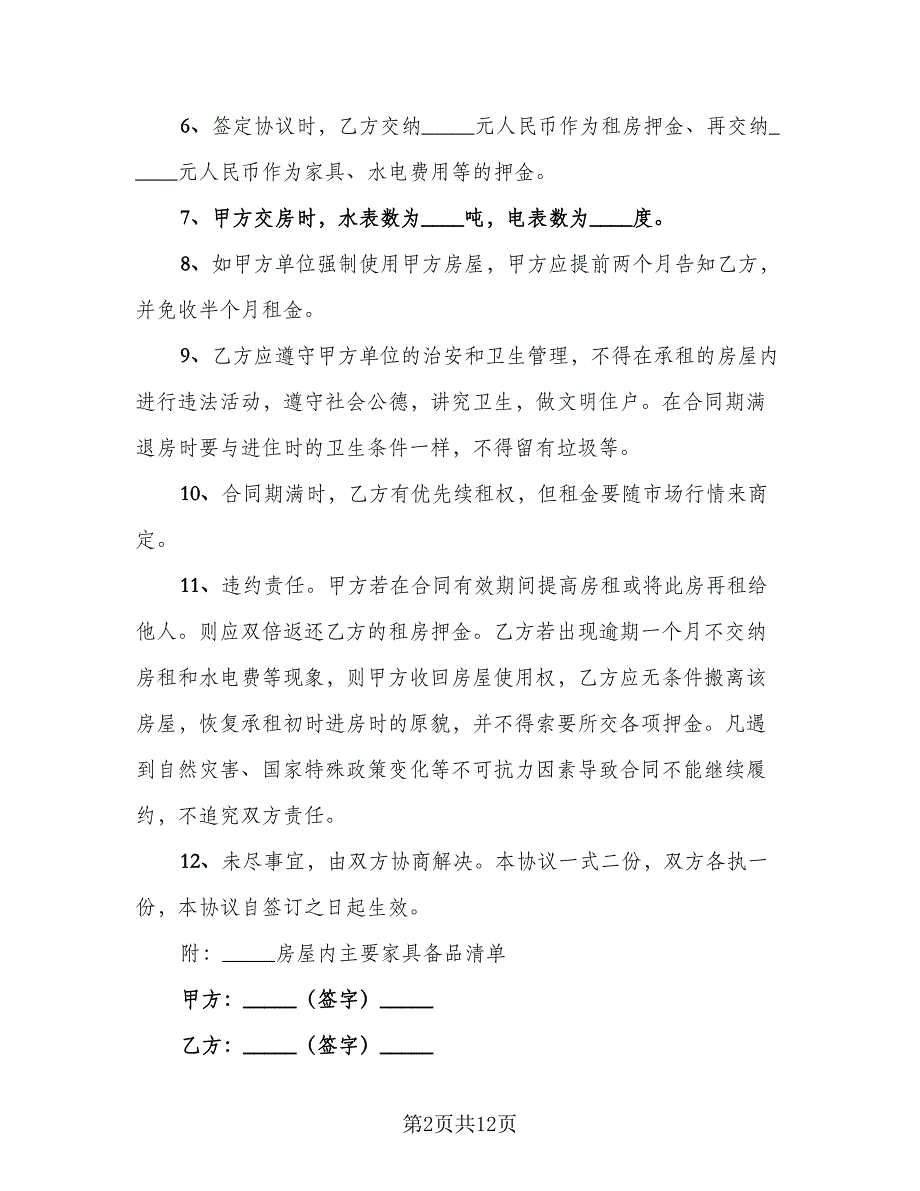 6、签定协议时，乙方交纳_____元人民币作为租房押金、再交纳_
____元人民币作为家具、水电费用等的押金。
7、甲方交房时，水表数为____吨，电表数为____度。
8、如甲方单位强制使用甲方房屋，甲方应提前两个月告知乙方，
并免收半个月租金。
9、乙方应遵守甲方单位的治安和卫生管理，不得在承租的房屋内
进行违法活动，遵守社会公德，讲究卫生，做文明住户。在合同期满
退房时要与进住时的卫生条件一样，不得留有垃圾等。
10、合同期满时，乙方有优先续租权，但租金要随市场行情来商
定。
11、违约责任。甲方若在合同有效期间提高房租或将此房再租给
他人。则应双倍返还乙方的租房押金。乙方若出现逾期一个月不交纳
房租和水电费等现象，则甲方收回房屋使用权，乙方应无条件搬离该
房屋，恢复承租初时进房时的原貌，并不得索要所交各项押金。凡遇
到自然灾害、国家特殊政策变化等不可抗力因素导致合同不能继续履
约，不追究双方责任。
12、未尽事宜，由双方协商解决。本协议一式二份，双方各执一
份，本协议自签订之日起生效。
附：_____房屋内主要家具备品清单
甲方：_____（签字）_____
乙方：_____（签字）_____
第2页共12页